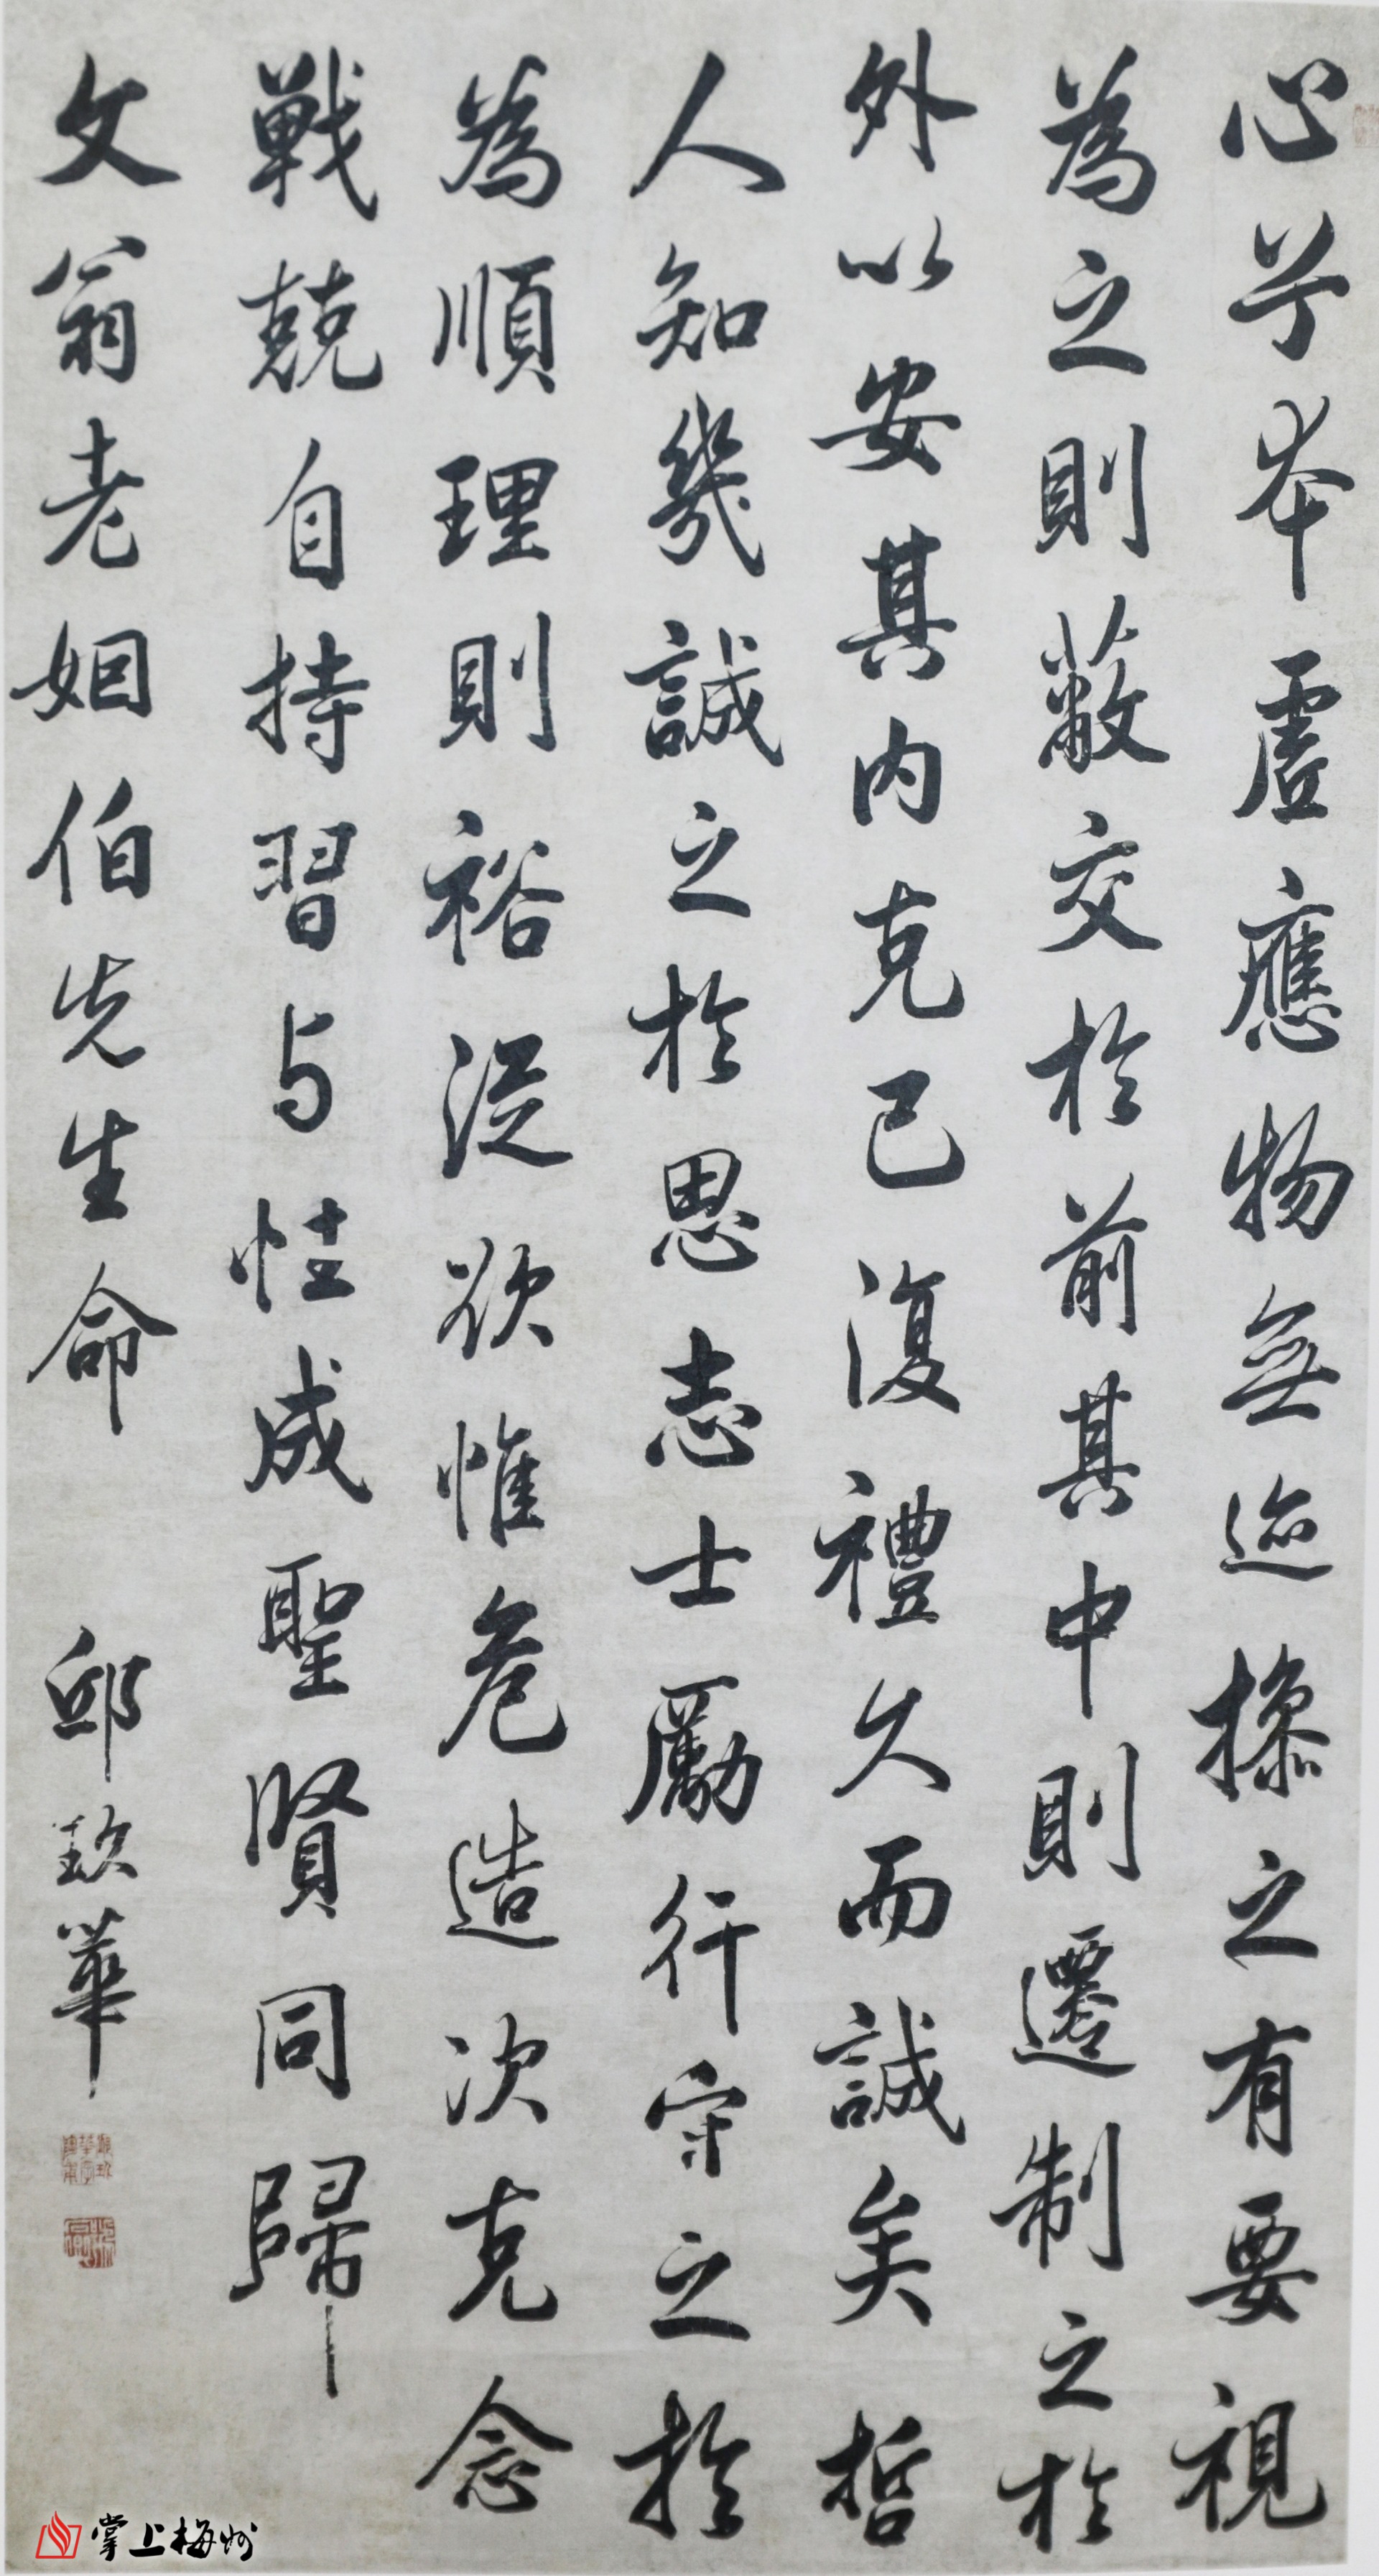 心兮本虛應物無迹操之有要視
為之則蔽交於前其中則遷制之於
外以安其內克己復禮久而誠矣哲
人知幾誠之於思志士勵行守之於
為順理則裕從欲惟危造次克念
戰兢自持習与性成聖賢同歸
文翁老姻伯先生命
邱玖華
掌上梅州